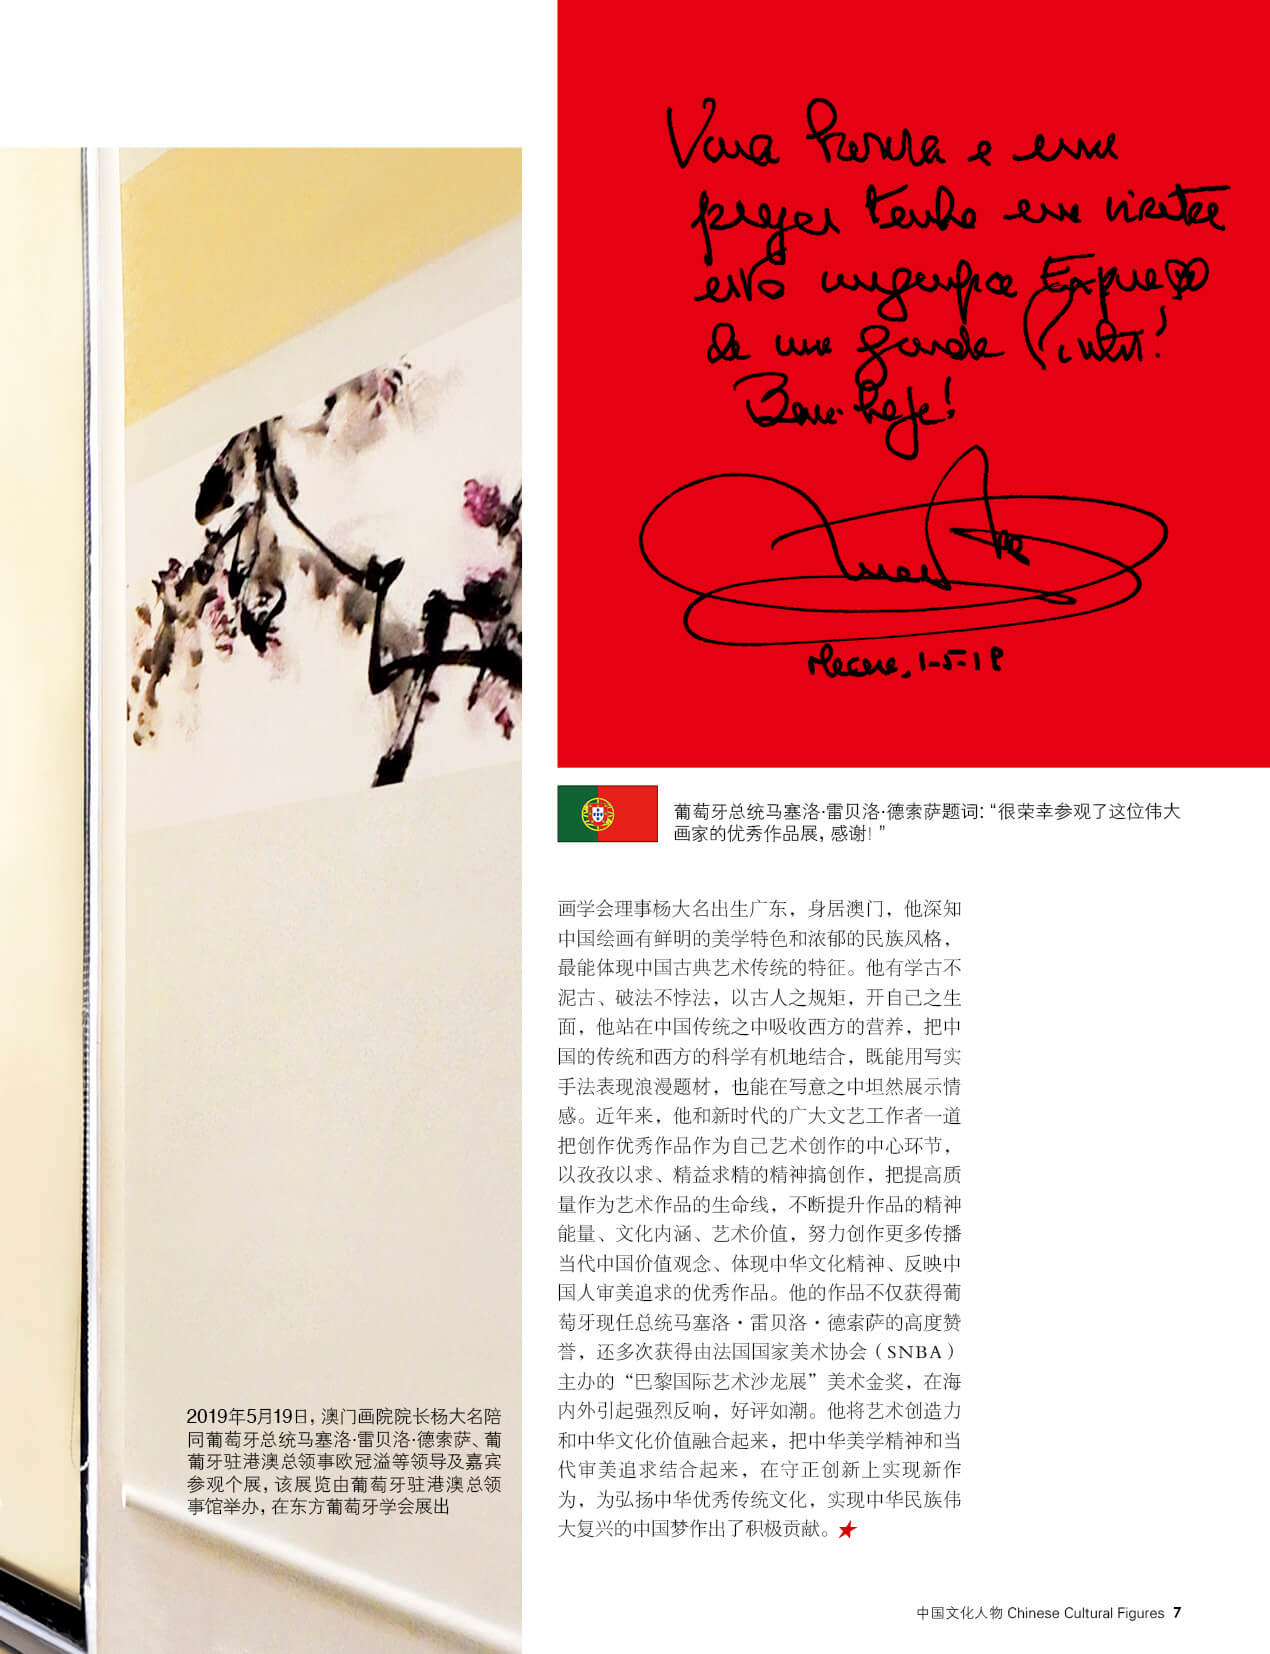 e
prazer tenho em visitar
esta
de um grande Pintor!
Bem haja!
葡萄牙总统马塞洛·雷贝洛·德索萨题词：“很荣幸参观了这位伟大
画家的优秀作品展，感谢！”
画学会理事杨大名出生广东，身居澳门，他深知
中国绘画有鲜明的美学特色和浓郁的民族风格，
最能体现中国古典艺术传统的特征。他有学古不
泥古、破法不悖法，以古人之规矩，开自己之生
面，他站在中国传统之中吸收西方的营养，把中
国的传统和西方的科学有机地结合，既能用写实
手法表现浪漫题材，也能在写意之中坦然展示情
感。近年来，他和新时代的广大文艺工作者一道
把创作优秀作品作为自己艺术创作的中心环节，
以孜孜以求、精益求精的精神搞创作，把提高质
量作为艺术作品的生命线，不断提升作品的精神
能量、文化内涵、艺术价值，努力创作更多传播
当代中国价值观念、体现中华文化精神、反映中
国人审美追求的优秀作品。他的作品不仅获得葡
萄牙现任总统马塞洛·雷贝洛·德索萨的高度赞
誉，还多次获得由法国国家美术协会（SNBA）
主办的“巴黎国际艺术沙龙展”美术金奖，在海
内外引起强烈反响，好评如潮。他将艺术创造力
和中华文化价值融合起来，把中华美学精神和当
代审美追求结合起来，在守正创新上实现新作
为，为弘扬中华优秀传统文化，实现中华民族伟
大复兴的中国梦作出了积极贡献。
2019年5月19日，澳门画院院长杨大名陪
同葡萄牙总统马塞洛·雷贝洛·德索萨、葡
萄牙驻港澳总领事欧冠溢等领导及嘉宾
参观个展，该展览由葡萄牙驻港澳总领
事馆举办，在东方葡萄牙学会展出
中国文化人物 Chinese Cultural Figures 7